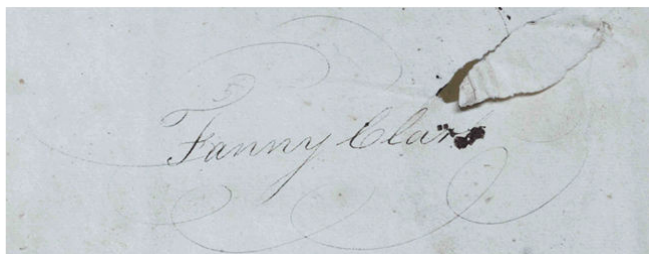 Fanny Clark